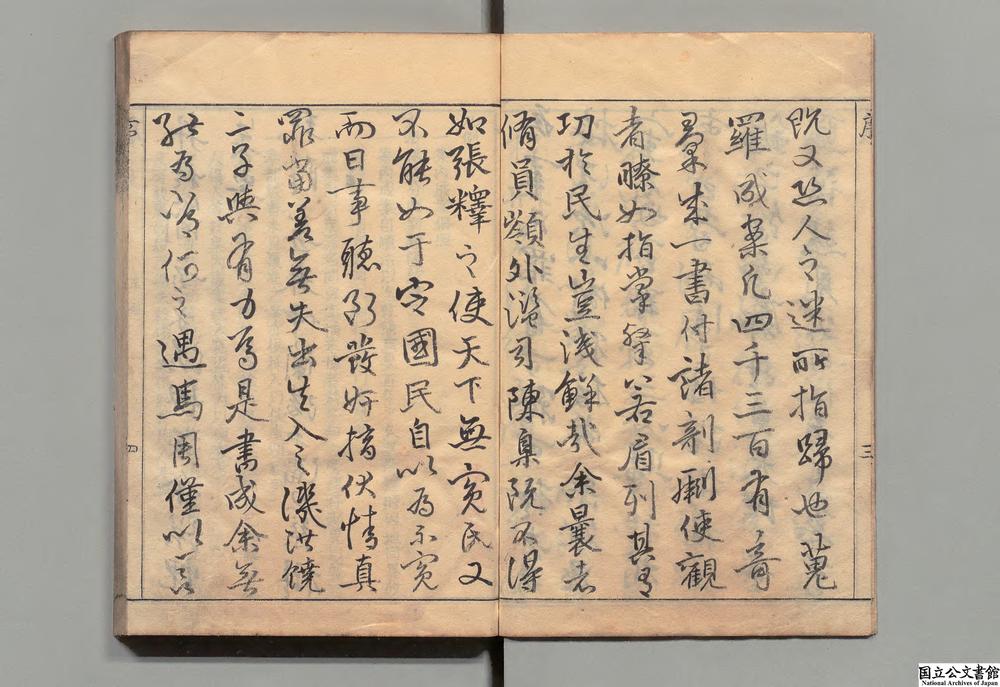 序
三
既又恐人之迷所指歸也蒐
羅成案凡四千三百有奇
彙成一書付諸剞劂使觀
者瞭如指掌繄若眉列其有
功於民生豈淺鮮哉余曩者
備員嶺外濫司陳臬既不得
如張釋之使天下無寃民又
不能如于定國民自以為不寃
而日事聽斷發奸擿伏情真
罪當差無失出失入之譏洪饒
二子與有力焉是書成余無
能為常何之遇馬周僅以言
序
四
国立公文書館
National Archives of Japan